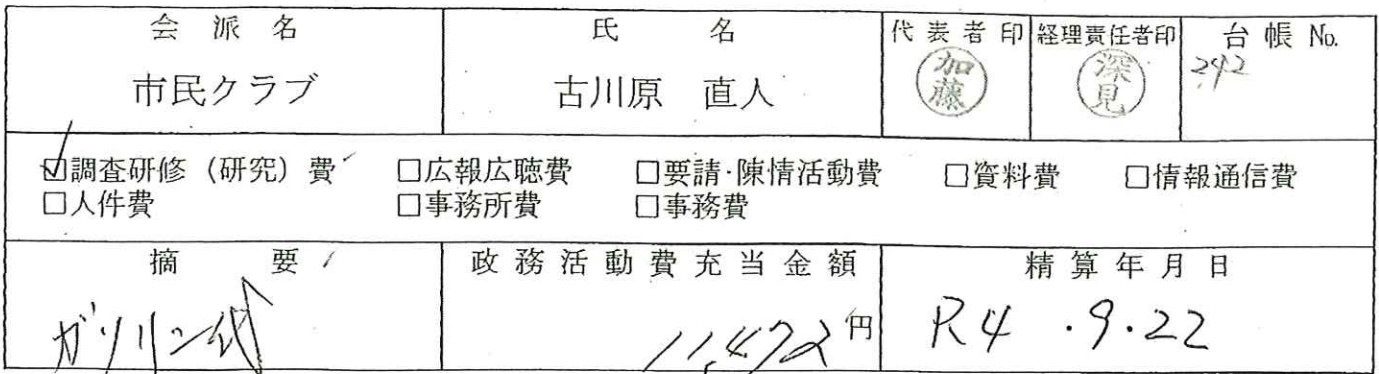 会派名 氏名 代表者印 経理責任者印 台帳No.
市民クラブ 古川原 直人 加藤 深見 242
☑調査研修（研究）費 □広報広聴費 □要請·陳情活動費 □資料費 □情報通信費
□人件費 □事務所費 □事務費
摘要 政務活動費充当金額 精算年月日
ガソリン代 11,472円 R4.9.22